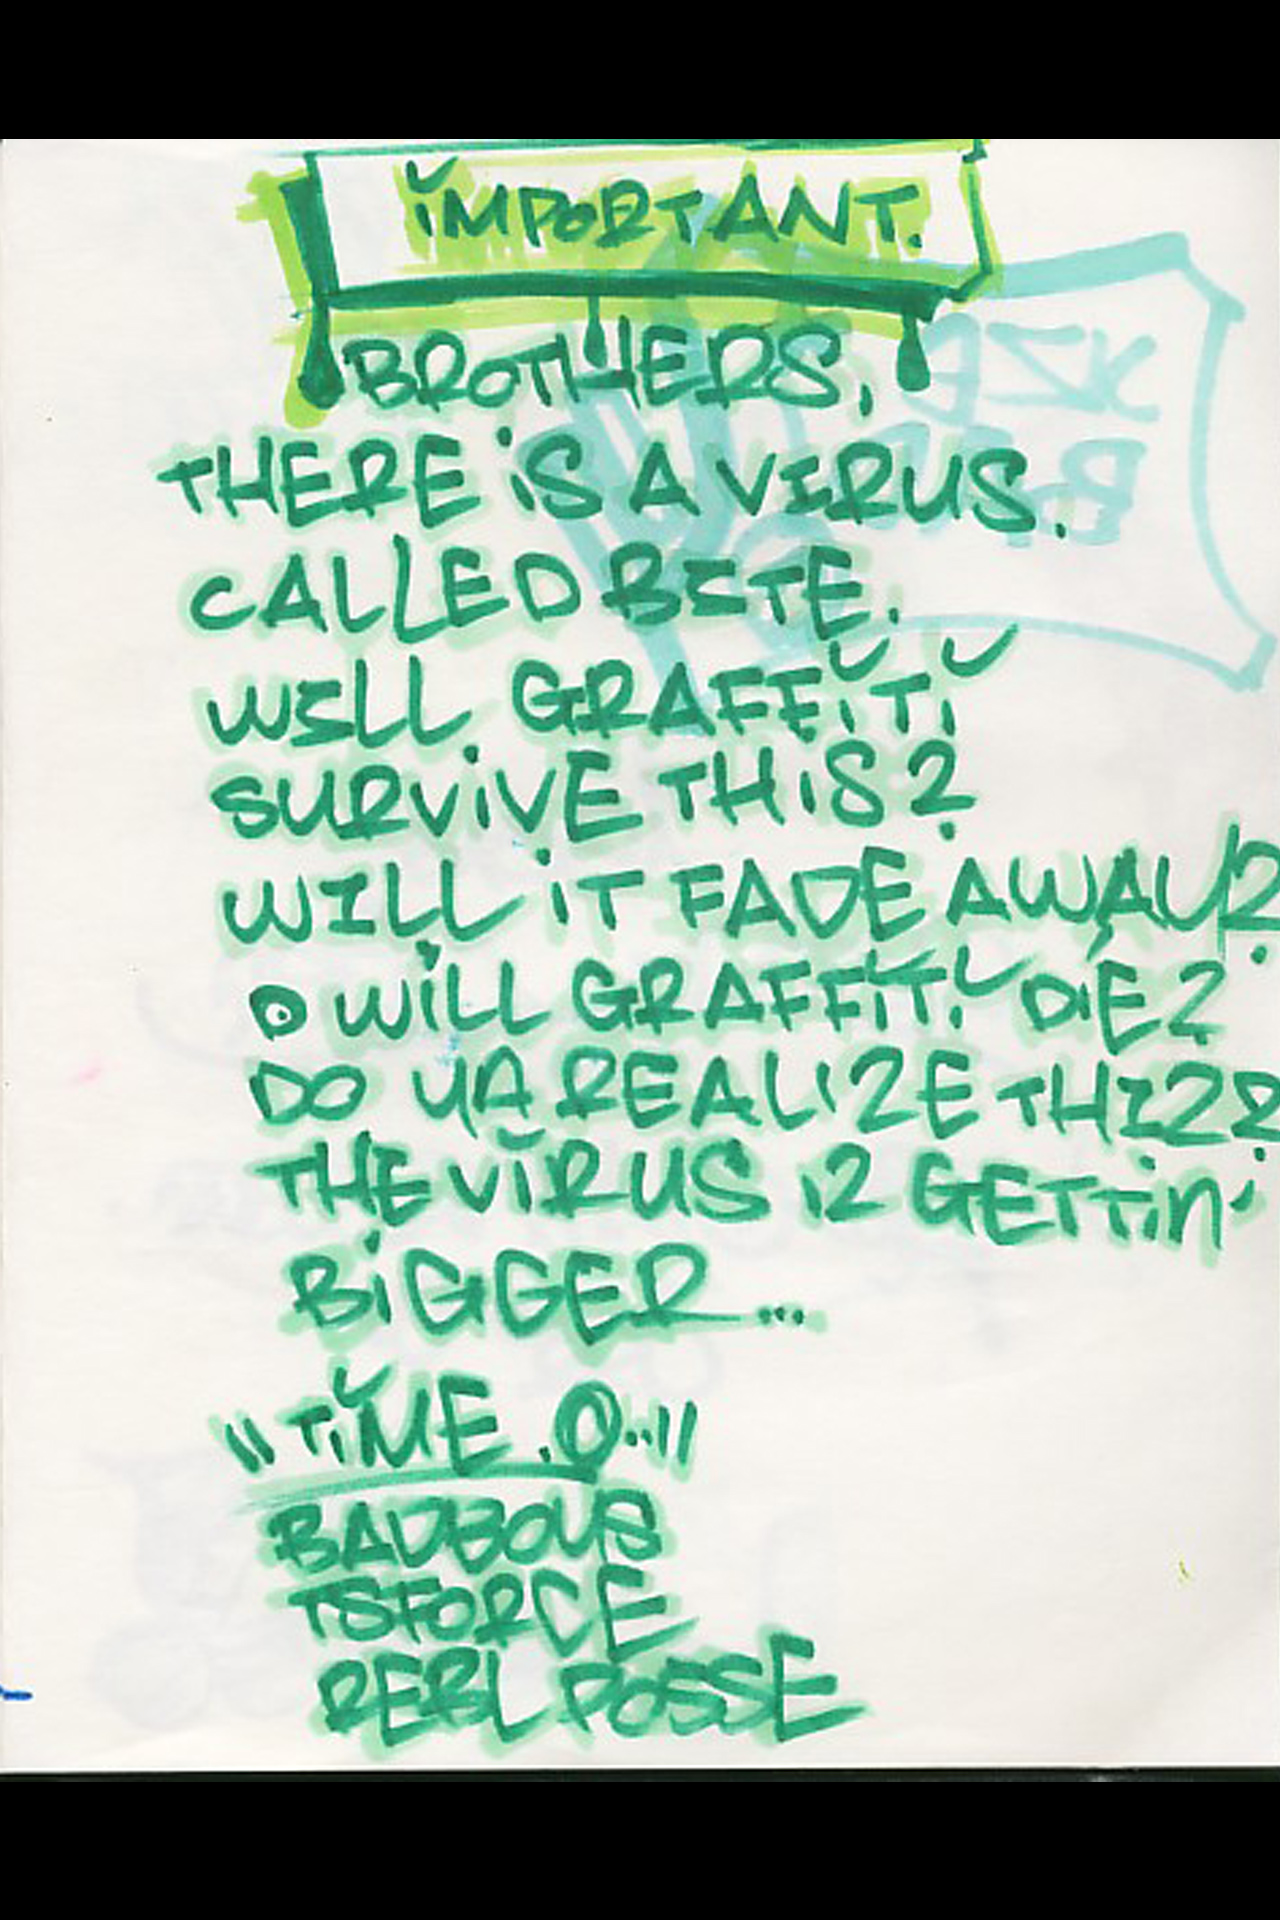 IMPORTANT.
BROTHERS,
THERE iS A VIRUS.
CALLED BITE.
WILL GRAFFiTi
SURViVE THiS?
WILL iT FADE AWAY?
WiLL GRAFFiTi DiE?
DO YA REALiZE THIZ?
THE ViRUS iZ GETTiN'
BiGGER...
"TiME .O.."
BADBOYS
TSFORCE
REBL POSSE